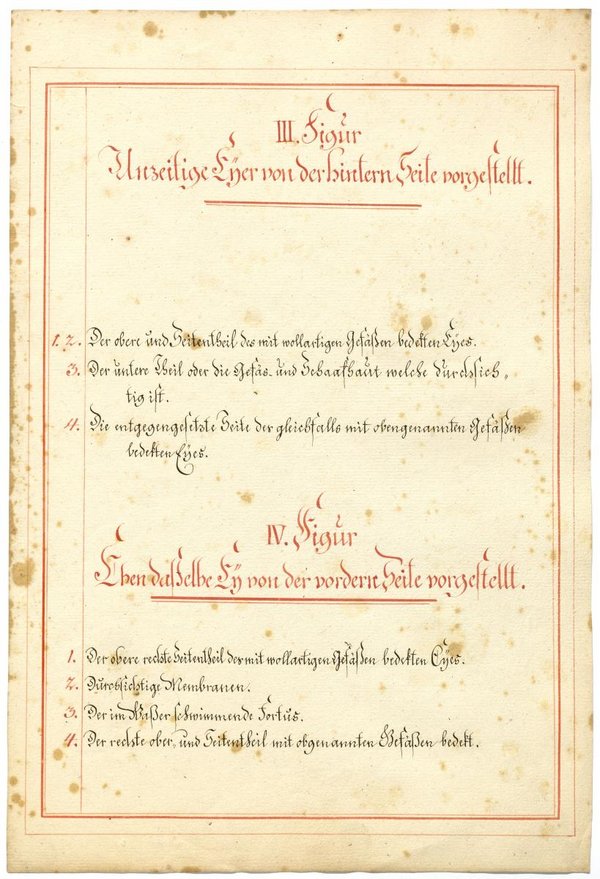 III. Figur
Unzeitige Eyer von der hintern Seite vorgestellt.
1. 2. Der obere und Seitentheil des mit wollartigen Gefäßen bedekten Eyes.
3. Der untere Theil oder die Gefäs- und Schaafhaut welche durchsich-
tig ist.
4. Die entgegengesetzte Seite der gleichfalls mit obengenannten Gefäßen
bedekten Eyes.
IV. Figur
Eben daßelbe Ey von der vordern Seite vorgestellt.
1. Der obere rechte Seitentheil des mit wollartigen Gefäßen bedekten Eyes.
2. Durchsichtige Membranen.
3. Der im Waßer schwimmende Foetus.
4. Der rechte ober- und Seitentheil mit obgenannten Gefäßen bedekt.